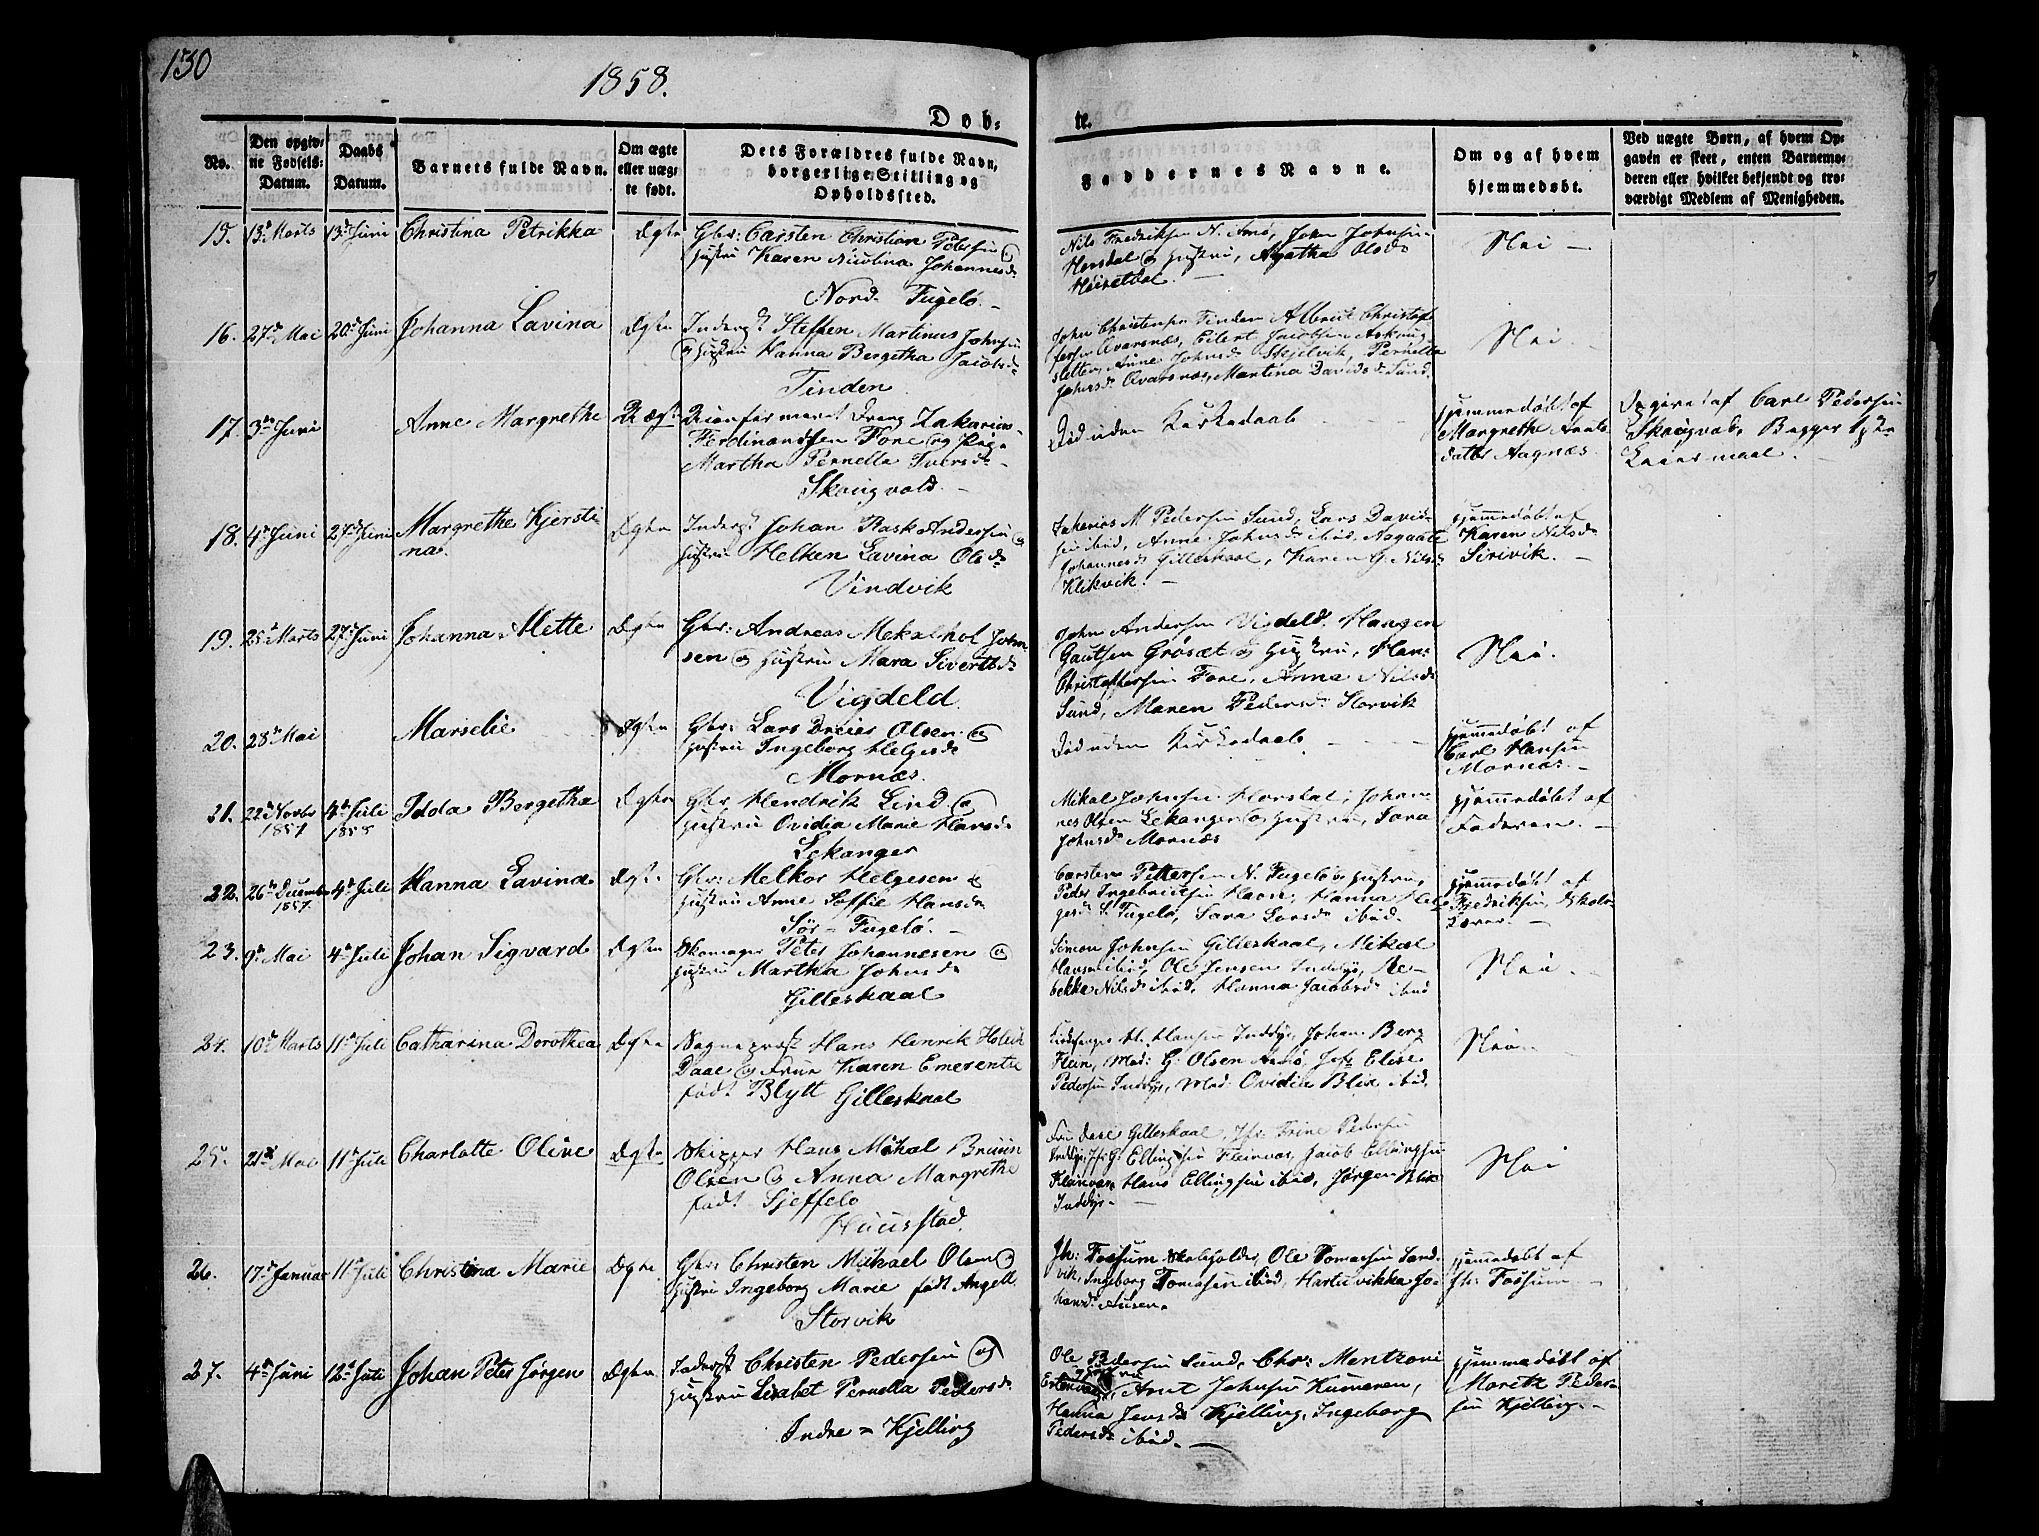 130
1858.
Døb-
te.
No.
Den opgiv-
ne Fødsels-
Datum.
Daabs
Datum.
Barnets fulde Navn.
Om ægte
eller uæg-
te født.
Dets Forældres fulde Navn,
borgerlige Stilling og
Opholdssted.
Faddernes Navne.
Om og af hvem
hjemmedøbt.
Ved uægte Børn, af hvem Op-
gaven er skeet, enten Barnemo-
deren eller hvilket bekjendt og tro-
værdigt Medlem af Menigheden.
15. 13de Marts 13de Juni Christina Petrikka Ægte Gbr: Carsten Christian Peter
Hustru Karen Nicolina Johannesd.
Nord Fugelø.
Nils Fredriksen N. Arnø, John Johnsen
Horsdal og Hustru, Agatha Olsd.
Nei
16. 27de Mai 20de Juni Johanna Lavina Ægte Inderst Steffen Martinus Johnsen
og Hustru Hanna Bergetha Jacobsd.
Tinden
John Christensen Tinden Albrict Christof-
fersen Qvarsnæs, Eilert Jacobsen
Anne Johnsd. Skjelvik, Pernella
Johnsd. Qvarsnæs, Martina Davidsd. Sund.
Nei.
17. 3de Juni Anne Margrethe Uægte Dreng Zakarias
Ferdinandsen Fore og Pige
Martha Pernella Iversd.
Skaugvold.
Død uden Kirkedaab
Hjemmedøbt af
Margrethe
datter Aagnæs.
Opgived af Carl Pedersen
Skaugvold, Begges 1ste
Leiermaal.
18. 4de Juni 27de Juni Margrethe Kjersti-
na. Ægte Inderst Johan Rask Andersen og
Hustru Helken Lavina Olsd.
Vindvik
Zakarias M Pedersen Sund, Lars David-
sen ibid, Anne Johnsd. ibid, Aagaate
Johannesd. Gilleskaal, Karen G. Nilsd.
Klikvik.
Hjemmedøbt af
Karen Nilsd.
Sirivik.
19. 25de Marts 27de Juni Johanna Mette Ægte Gbr: Andreas Mekalhol John-
sen og Hustru Mara Sivertsd.
Vigdeld.
John Andersen Vigdeld, Haagen
Gautsen Grøset og Hustru, Hans
Christoffersen Fore, Anna Nilsd.
Sund, Maren Pedersd. Storvik
Nei.
20. 28de Mai Marselie Ægte Gbr: Lars Dreier Olsen og
Hustru Ingeborg Helgesd.
Mornæs.
Død uden Kirkedaab
Hjemmedøbt af
Carl Hansen
Mornæs.
21. 22de Novbr 1857 4de Juli 1858 Idda Bergetha Ægte Gbr Hendrik Lind og
Hustru Ovidia Marie Hansd.
Lekanger
Mikal Johnsen Horsdal, Johan-
nes Olsen Lekanger og Hustru, Sara
Johnsd. Mornæs
Hjemmedøbt af
Faderen.
22. 26de Decembr 1857. 4de Juli Hanna Lavina Ægte Gbr: Melkor Helgesen og
Hustru Anne Soffie Hansd.
Sør-Fugelø.
Carsten Pettersen N. Fugelø og Hustru,
Peder Ingebrictsen Haavn, Hanna Hel-
gesd. S. Fugelø, Sara Larsd. ibid.
Hjemmedøbt af
Fredriksen, Skole-
Lærer.
23. 9de Mai 4de Juli Johan Sigvard Ægte Skomager Peter Johannesen og
Hustru Martha Johnsd.
Gilleskaal
Simon Johnsen Gilleskaal, Mikal
Hansen ibid, Ole Jensen Inddyr, Re-
bekka Nilsd. ibid, Hanna Jacobsd. ibid
Nei.
24. 10de Marts 11te Juli Catharina Dorothea Ægte Sogneprest Hans Henrik Holck
Daae og Frue Karen Emerentse
født Blytt Gilleskaal
M. Hansen Inddyr, Johan Berg
Flein, Mad: G. Olsen Arnø, Jfr Elise
Pedersen Inddyr, Mad: Ovidia Blix ibid.
Nei.
25. 21de Mai 11te Juli Charlotte Oline Ægte Skipper Hans Mikal Bruun
Olsen og Anna Margrethe
født Sjeffelo
Huusstad.
Fru Daae Gilleskaal, Jfr. Trine Pedersen
Inddyr, Jfr G. Ellingsen Fleinvær, Jacob Ellingsen
Fleinvær, Hans Ellingsen ibid, Jørgen Blix
Inddyr.
Nei
26. 17de Januar 11te Juli Christina Marie Ægte Gbr: Christen Michael Olsen og
Hustru Ingeborg Marie født Angell
Storvik
Jh: Fossum Skoleholder, Ole Tomasen Sand-
vik, Ingeborg Tomasen ibid, Hartevikka Jo-
hansd. Ausen.
Hjemmedøbt af
Jh: Fossum
27. 4de Juni 12te Juli Johan Peter Jørgen Ægte Inderst Christen Pedersen og
Hustru Lisabet Pernella Pedersd.
Indre-Kjelling
Ole Pedersen Sund, Chr: Mentzoni
Arnt Johnsen Humeren,
Hanna Jensd. Kjelling, Ingeborg
Pedersd. ibid.
Hjemmedøbt af
Moritz Peder-
sen Kjelling.